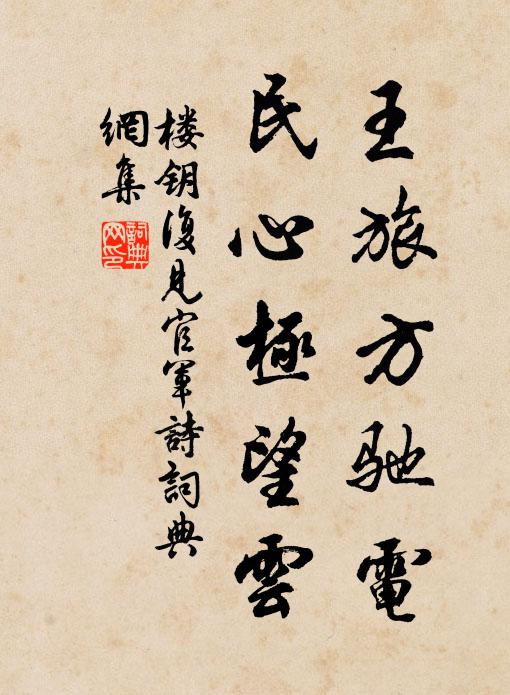 王旅方馳電
民心極望雲
楼钥復見官軍詩詞典
網集
詞典
网印